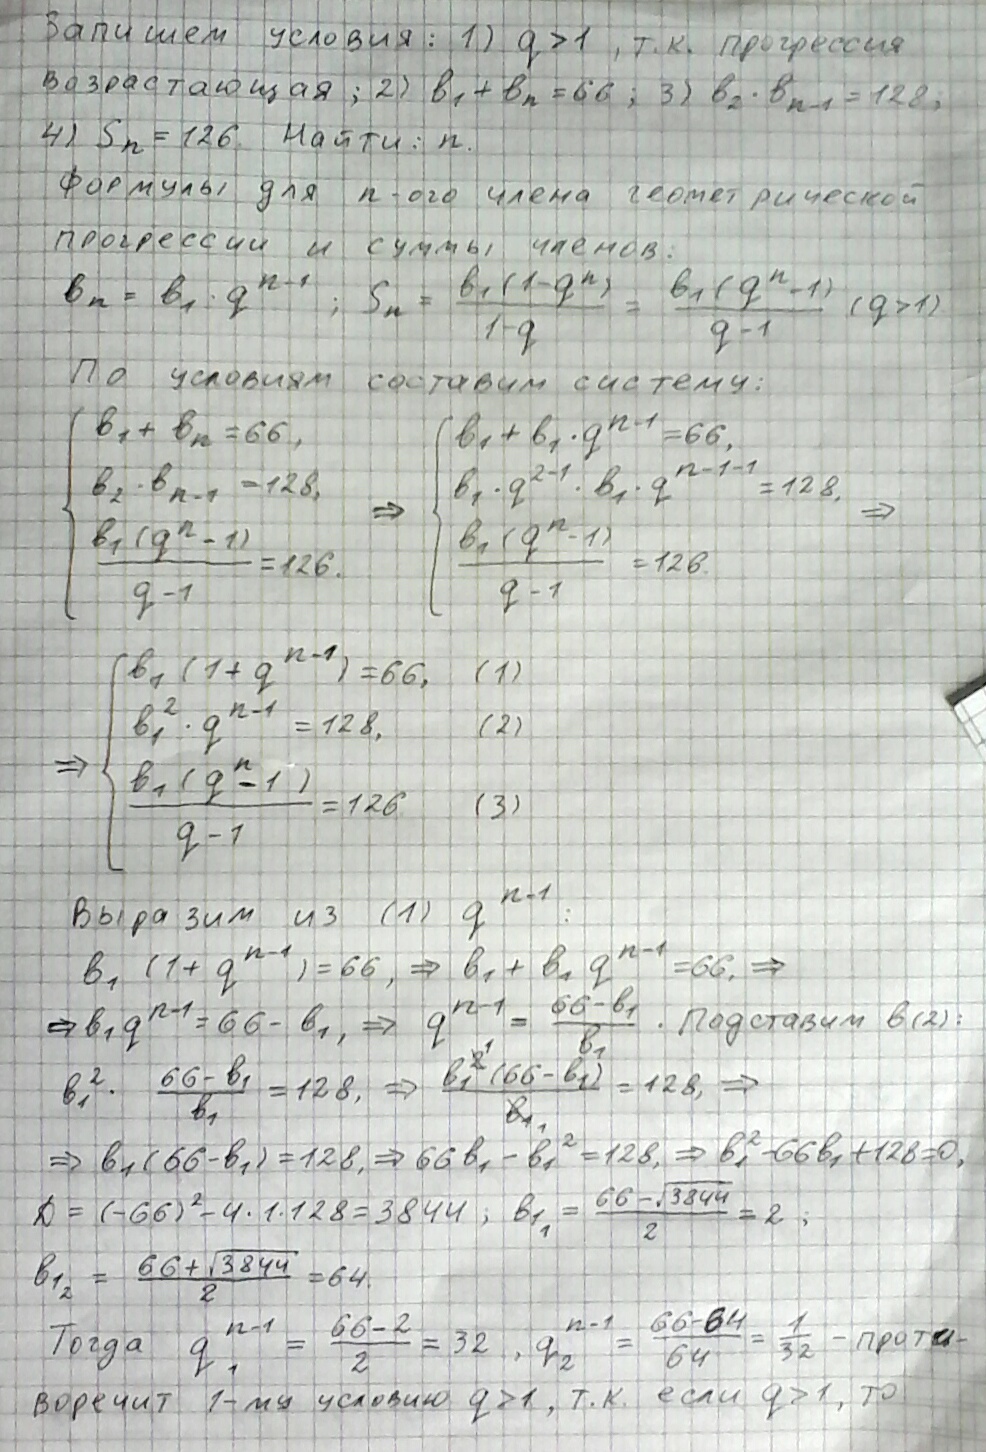 Запишем условия: 1) q>1, т.к. прогрессия
возрастающая; 2) b₁+bₙ=66; 3) b₂·bₙ₋₁=128;
4) Sₙ=126. Найти: n.
Формулы для n-ого члена геометрической
прогрессии и суммы членов:
bₙ = b₁·q^(n-1); Sₙ = b₁(1-qⁿ)/(1-q) = b₁(qⁿ-1)/(q-1) (q>1)
По условиям составим систему:
{ b₁+bₙ=66, b₂·bₙ₋₁=128, b₁(qⁿ-1)/(q-1)=126. ⇒ { b₁+b₁·q^(n-1)=66, b₁·q^(2-1)·b₁·q^(n-1-1)=128, b₁(qⁿ-1)/(q-1)=126. ⇒
⇒ { b₁(1+q^(n-1))=66, (1)
b₁²·q^(n-1)=128, (2)
b₁(qⁿ-1)/(q-1)=126 (3)
Выразим из (1) q^(n-1):
b₁(1+q^(n-1))=66, ⇒ b₁+b₁q^(n-1)=66, ⇒
⇒ b₁q^(n-1)=66-b₁, ⇒ q^(n-1)=(66-b₁)/b₁. Подставим в (2):
b₁²·(66-b₁)/b₁=128, ⇒ b₁²(66-b₁)/b₁=128, ⇒
⇒ b₁(66-b₁)=128, ⇒ 66b₁-b₁²=128, ⇒ b₁²-66b₁+128=0,
D=(-66)²-4·1·128=3844; b₁₁=(66-√3844)/2=2;
b₁₂=(66+√3844)/2=64.
Тогда q₁^(n-1)=(66-2)/2=32, q₂^(n-1)=(66-64)/64=1/32 - проти-
воречит 1-му условию q>1, т.к. если q>1, то